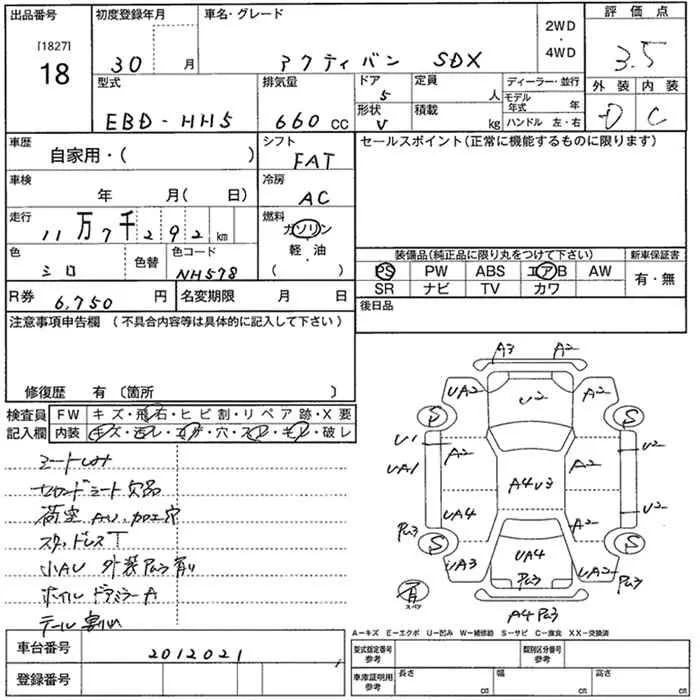 出品番号 初度登録年月 車名・グレード 2WD・4WD 評価点
[1827] 18 30 月 アクティバン SDX 3.5
型式 排気量 ドア 5 定員 人 ディーラー・並行 外装 内装
EBD-HH5 660 CC 形状 V 積載 kg モデル年式 年 D C
ハンドル 左・右
車歴 自家用・( ) シフト FAT セールスポイント(正常に機能するものに限ります)
車検 年 月( 日) 冷房 AC
走行 11万7千292 km 燃料 ガソリン 軽・油 ・( )
色 シロ 色替 色コード NH578
装備品(純正品に限り丸をつけて下さい) 新車保証書
PS PW ABS エアB AW 有・無
SR ナビ TV カワ
R券 6,750 円 名変期限 月 日 後日品
注意事項申告欄 (不具合内容等は具体的に記入して下さい)
修復歴 有 〔箇所 〕
検査員 FW キズ・飛石・ヒビ割・リペア跡・X要
記入欄 内装 キズ・汚レ・コゲ・穴・スレ・キレ・破レ
A3 A2
UA2 U2 A2
S S
U1 A2 A2 U2
UA1 A4U3
UA4 A2 U2
PW3 S S
UA3 UA4 UA2 PW3
PW3
有 スペア
A4 PW3
シートしみ
セカンドシート欠品
荷室 AU.加工穴
スタッドレスT
小AU 外装PW3有り
ホイル ドアミラーA
テール割れ
A-キズ E-エクボ U-凹み W-補修跡 S-サビ C-腐食 XX-交換済
車台番号 2012021 型式指定番号 参考 類別区分番号 参考
登録番号 車庫証明用 参考 長さ cm 幅 cm 高さ cm